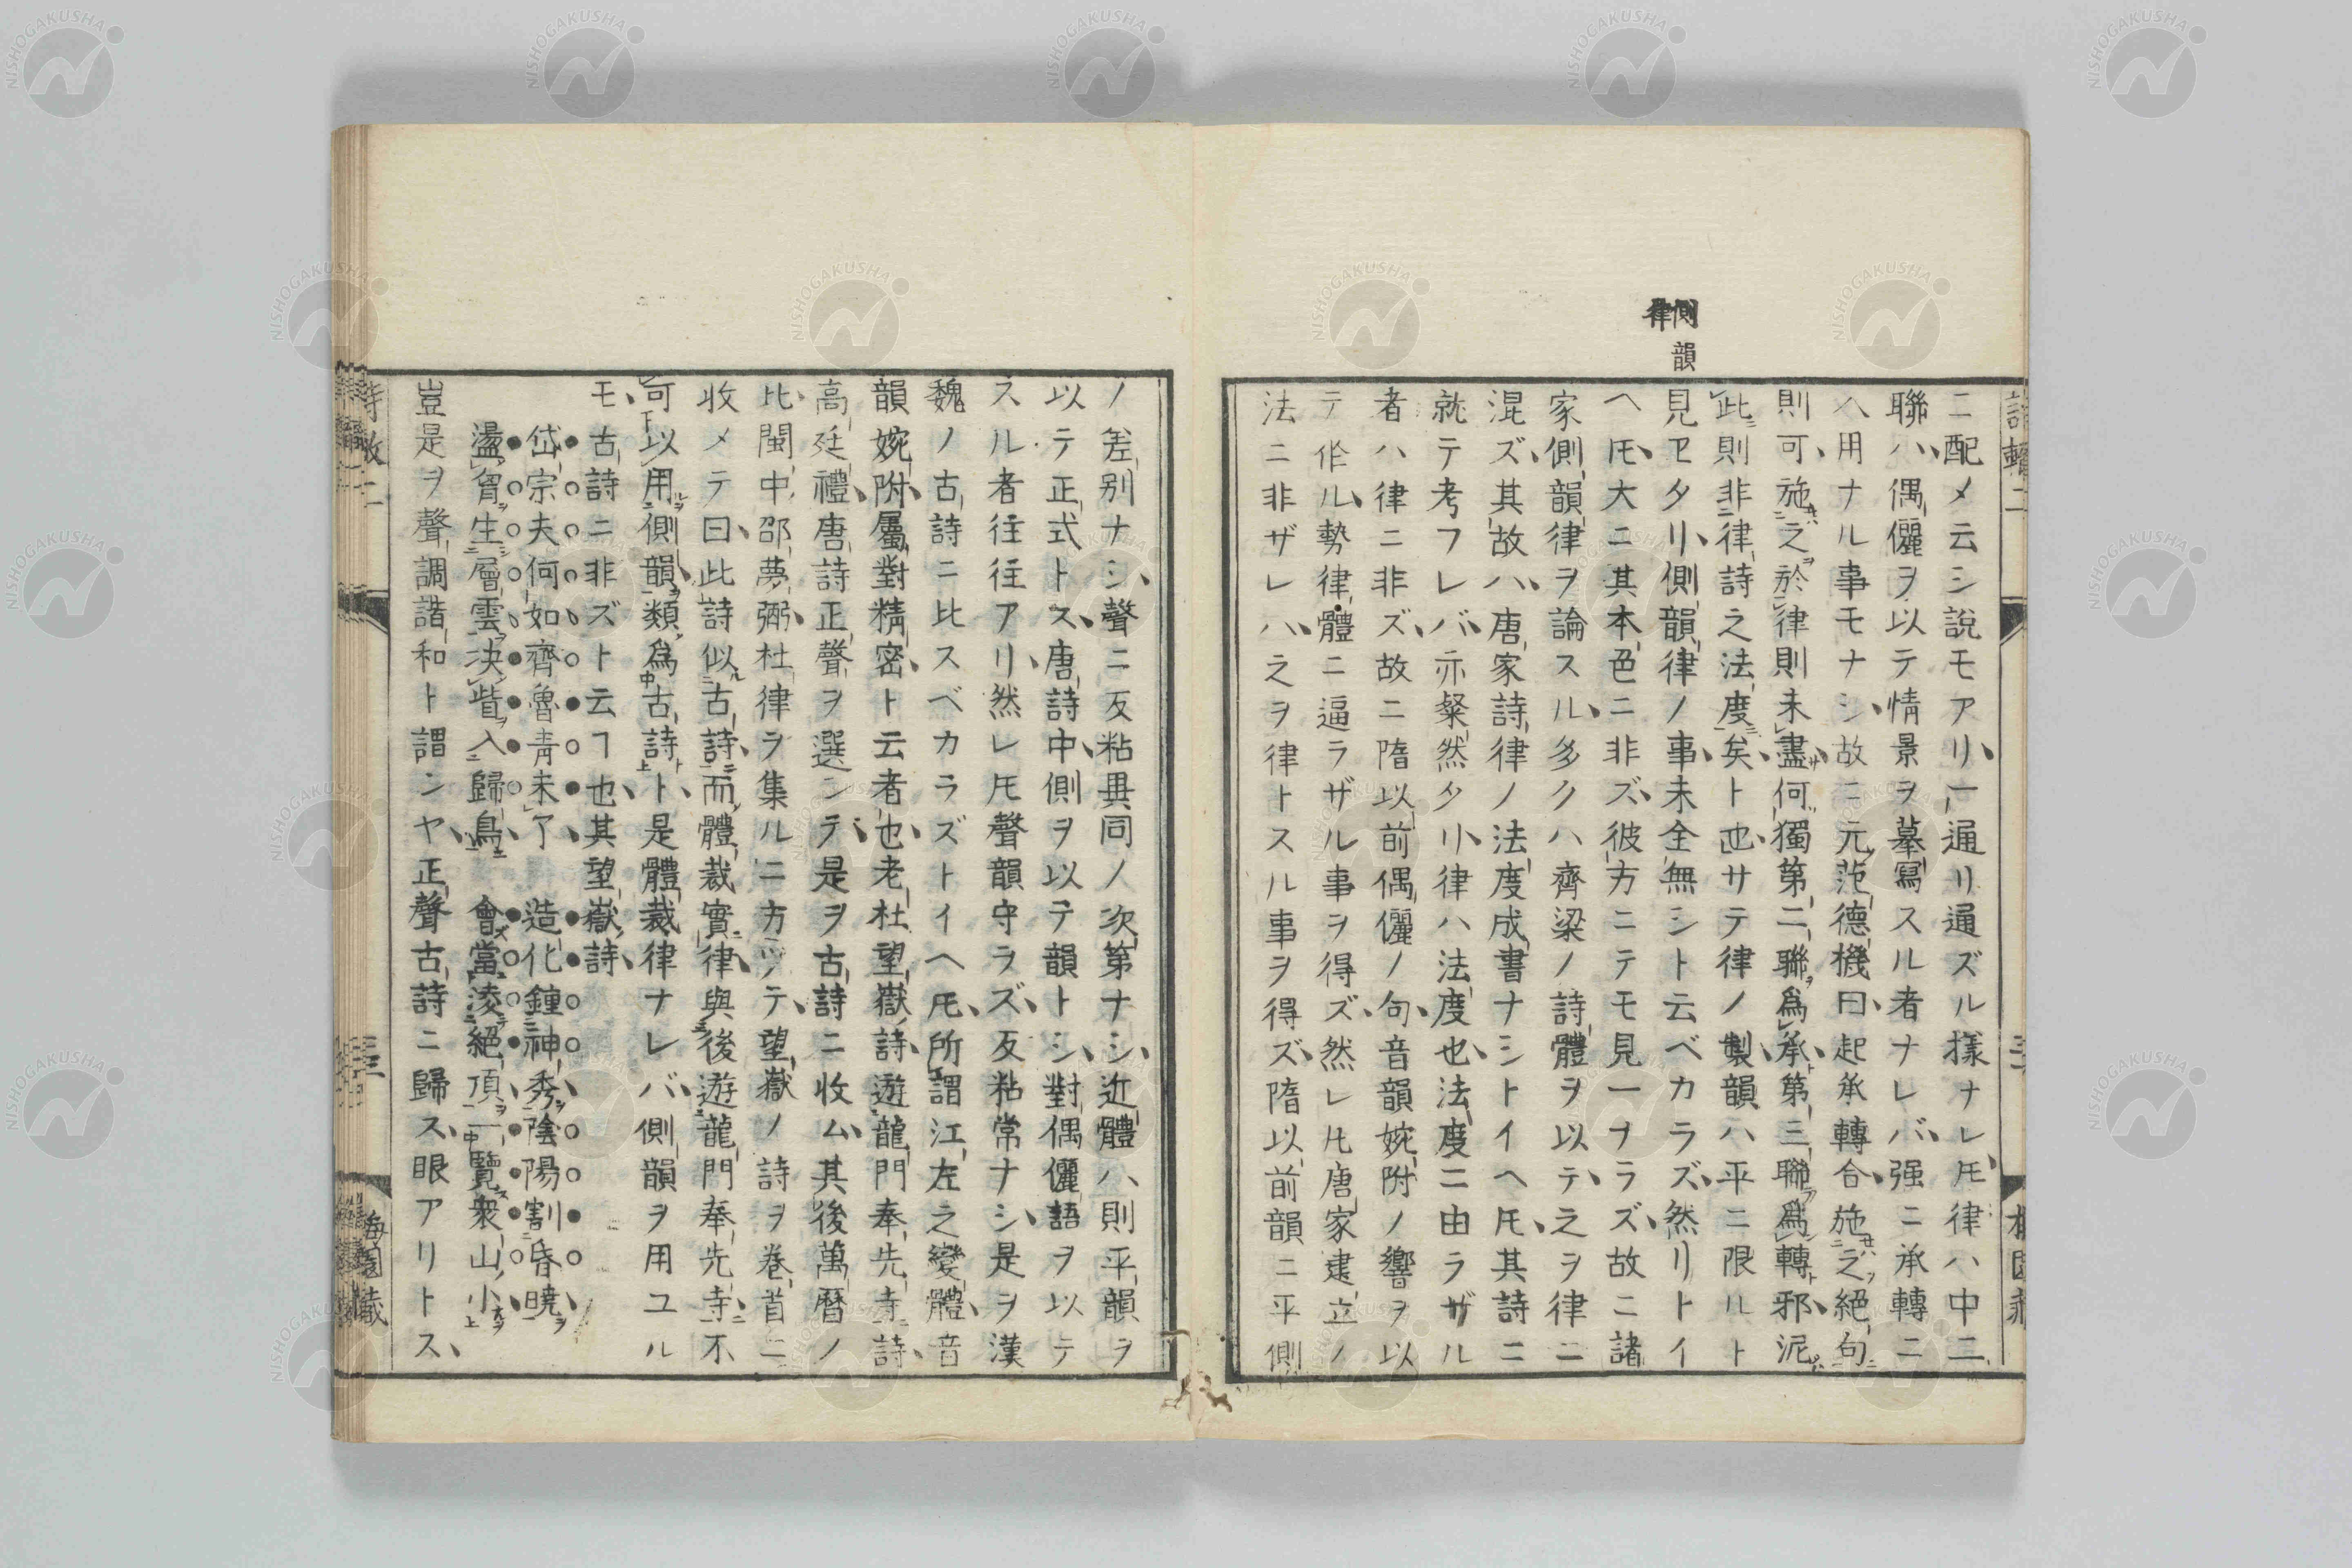 側韻
律
二配メ云シ說モアリ、一通リ通ズル樣ナレ𪜈、律ハ中二
聯ハ、偶儷ヲ以テ情景ヲ摹寫スル者ナレバ、强ニ承轉ニ
ハ用ナル事モナシ、故ニ元范德機曰、起承轉合、施之絕句
則可、施之於律則未盡、何獨第二聯爲承、第三聯爲轉邪、泥
此則非律詩之法度矣、ト也、サテ律ノ製韻ハ平ニ限ルト
見ヱタリ、側韻律ノ事、未全無シト云ベカラズ、然リトイ
ヘ𪜈、大ニ其本色ニ非ズ、彼方ニテモ見一ナラズ、故ニ諸
家側韻律ヲ論スル、多クハ齊梁ノ詩體ヲ以テ、之ヲ律ニ
混ズ、其故ハ、唐家詩律ノ法度成書ナシトイヘ𪜈、其詩ニ
就テ考フレバ、亦粲然タリ、律ハ法度也、法度ニ由ラザル
者ハ律ニ非ズ、故ニ隋以前偶儷ノ句、音韻婉附ノ響ヲ以
テ作ル、勢律體ニ逼ラザル事ヲ得ズ、然レ𪜈唐家建立ノ
法ニ非ザレハ、之ヲ律トスル事ヲ得ズ、隋以前韻ニ平側
ノ差別ナシ、聲ニ反粘異同ノ次第ナシ、近體ハ則平韻ヲ
以テ正式トス、唐詩中、側ヲ以テ韻トシ、對偶儷語ヲ以テ
スル者往往アリ、然レ𪜈聲韻守ラズ、反粘常ナシ、是ヲ漢
魏ノ古詩ニ比スベカラズトイヘ𪜈、所謂江左之變體、音
韻婉附、屬對精密、ト云者也、老杜望嶽詩、遊龍門奉先寺詩、
高廷禮、唐詩正聲ヲ選ンテ、是ヲ古詩ニ收ム、其後萬曆ノ
比、閩中邵夢弼、杜律ヲ集ルニ方ツテ、望嶽ノ詩ヲ卷首ニ
收メテ曰、此詩似古詩、而體裁實律、與後遊龍門奉先寺、不
可以用側韻、類爲古詩、ト、是體裁律ナレバ、側韻ヲ用ユル
モ、古詩ニ非ズト云ヿ也、其望嶽詩、
岱宗夫何如齊魯靑未了、造化鍾神秀、陰陽割昏曉、
盪胷生層雲、決眥入歸鳥、會當凌絕頂、一覽衆山小、
豈是ヲ聲調諧和ト謂ンヤ、正聲古詩ニ歸ス、眼アリトス、